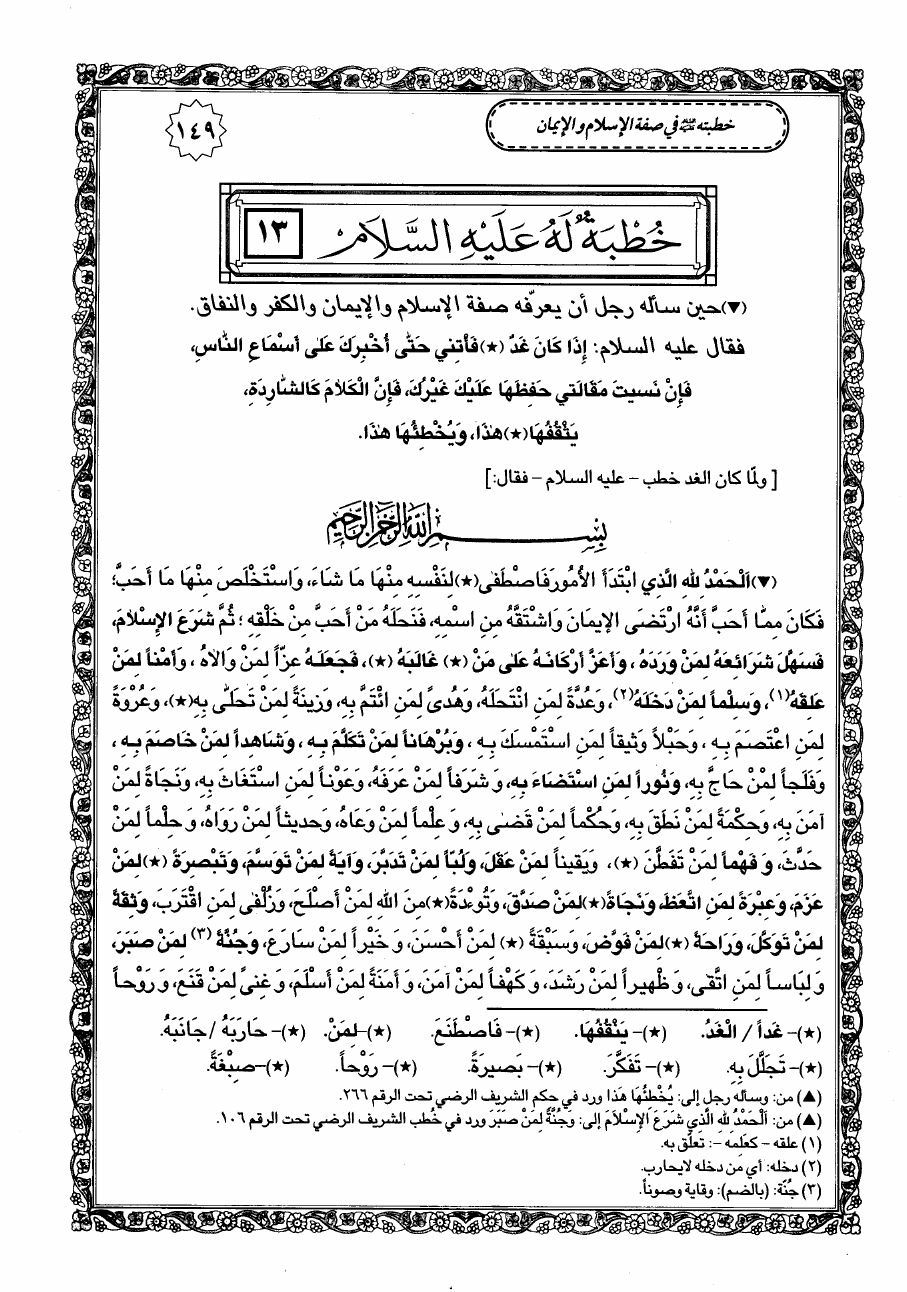 خطبته ﷺ في صفة الإسلام والإيمان
١٤٩
خُطْبَةٌ لَهُ عَلَيْهِ السَّلَامُ
١٣
(▼)حين سأله رجل أن يعرّفه صفة الإسلام والإيمان والكفر والنفاق.
فقال عليه السلام: إِذَا كَانَ غَدٌ (★)فَأْتِني حَتّٰى أُخْبِرَكَ عَلىٰ أَسْمَاعِ النّاسِ،
فَإِنْ نَسيتَ مَقَالَتي حَفِظَهَا عَلَيْكَ غَيْرُكَ، فَإِنَّ الْكَلَامَ كَالشّارِدَةِ،
يَثْقُفُهَا(★)هٰذَا، وَيُخْطِئُهَا هٰذَا.
[ ولمّا كان الغد خطب – عليه السلام – فقال:]
بِسْمِ اللهِ الرَّحْمٰنِ الرَّحِيمِ
(▼)اَلْحَمْدُ للهِ الَّذِي ابْتَدَأَ الأُمُورَ فَاصْطَفىٰ(★)لِنَفْسِهِ مِنْهَا مَا شَاءَ، وَاسْتَخْلَصَ مِنْهَا مَا أَحَبَّ؛
فَكَانَ مِمّا أَحَبَّ أَنَّهُ ارْتَضَى الإيمَانَ وَاشْتَقَّهُ مِنِ اسْمِهِ، فَنَحَلَهُ مَنْ أَحَبَّ مِنْ خَلْقِهِ ؛ ثُمَّ شَرَعَ الإِسْلَامَ،
فَسَهَّلَ شَرَائِعَهُ لِمَنْ وَرَدَهُ ، وَأَعَزَّ أَرْكَانَهُ عَلىٰ مَنْ (★) غَالَبَهُ (★)، فَجَعَلَهُ عِزّاً لِمَنْ وَالَاهُ ، وَأَمْناً لِمَنْ
عَلِقَهُ(١)، وَسِلْماً لِمَنْ دَخَلَهُ(٢)، وَعُدَّةً لِمَنِ انْتَحَلَهُ، وَهُدىً لِمَنِ ائْتَمَّ بِهِ، وَزِينَةً لِمَنْ تَحَلّٰى بِهِ(★)، وَعُرْوَةً
لِمَنِ اعْتَصَمَ بِهِ ، وَحَبْلاً وَثيقاً لِمَنِ اسْتَمْسَكَ بِهِ ، وَبُرْهَاناً لِمَنْ تَكَلَّمَ بِهِ ، وَشَاهِداً لِمَنْ خَاصَمَ بِهِ ،
وَفَلَجاً لِمَنْ حَاجَّ بِهِ، وَنُوراً لِمَنِ اسْتَضَاءَ بِهِ، وَ شَرَفاً لِمَنْ عَرَفَهُ، وَعَوْناً لِمَنِ اسْتَغَاثَ بِهِ، وَنَجَاةً لِمَنْ
آمَنَ بِهِ، وَحِكْمَةً لِمَنْ نَطَقَ بِهِ، وَحُكْماً لِمَنْ قَضىٰ بِهِ، وَ عِلْماً لِمَنْ وَعَاهُ، وَحَديثاً لِمَنْ رَوَاهُ، وَ حِلْماً لِمَنْ
حَدَّثَ، وَ فَهْماً لِمَنْ تَفَطَّنَ (★)، وَيَقيناً لِمَنْ عَقَلَ، وَلُبّاً لِمَنْ تَدَبَّرَ، وَآيَةً لِمَنْ تَوَسَّمَ، وَتَبْصِرَةً (★)لِمَنْ
عَزَمَ، وَعِبْرَةً لِمَنِ اتَّعَظَ، وَنَجَاةً(★)لِمَنْ صَدَّقَ، وَتُوءَدَةً(★)مِنَ اللهِ لِمَنْ أَصْلَحَ، وَزُلْفىٰ لِمَنِ اقْتَرَبَ، وَثِقَةً
لِمَنْ تَوَكَّلَ، وَرَاحَةً (★)لِمَنْ فَوَّضَ، وَسَبْقَةً (★) لِمَنْ أَحْسَنَ، وَ خَيْراً لِمَنْ سَارَعَ، وَجُنَّةً (٣) لِمَنْ صَبَرَ،
وَ لِبَاساً لِمَنِ اتَّقى، وَ ظَهيراً لِمَنْ رَشَدَ، وَ كَهْفاً لِمَنْ آمَنَ، وَ أَمَنَةً لِمَنْ أَسْلَمَ، وَ غِنىً لِمَنْ قَنَعَ، وَ رَوْحاً
(★)– غَداً / الْغَدُ. (★)– يَنْقُفُهَا. (★)– فَاصْطَنَعَ. (★)–لِمَنْ. (★)– حَارَبَهُ / جَانَبَهُ.
(★)– تَجَلَّلَ بِهِ. (★)– تَفَكَّرَ. (★)– بَصيرَةً. (★)– رَوْحاً. (★)–صِبْغَةً.
(▲) من: وسأله رجل إلى: يُخْطِئُهَا هٰذَا ورد في حكم الشريف الرضي تحت الرقم ٢٦٦.
(▲) من: اَلْحَمْدُ للهِ الَّذي شَرَعَ الْإِسْلَامَ إلى: وَجُنَّةً لِمَنْ صَبَرَ ورد في خُطب الشريف الرضي تحت الرقم ١٠٦.
(١) علقه – كعلمه –: تعلّق به.
(٢) دخله: أي من دخله لايحارب.
(٣) جُنّة: (بالضم): وقاية وصوناً.